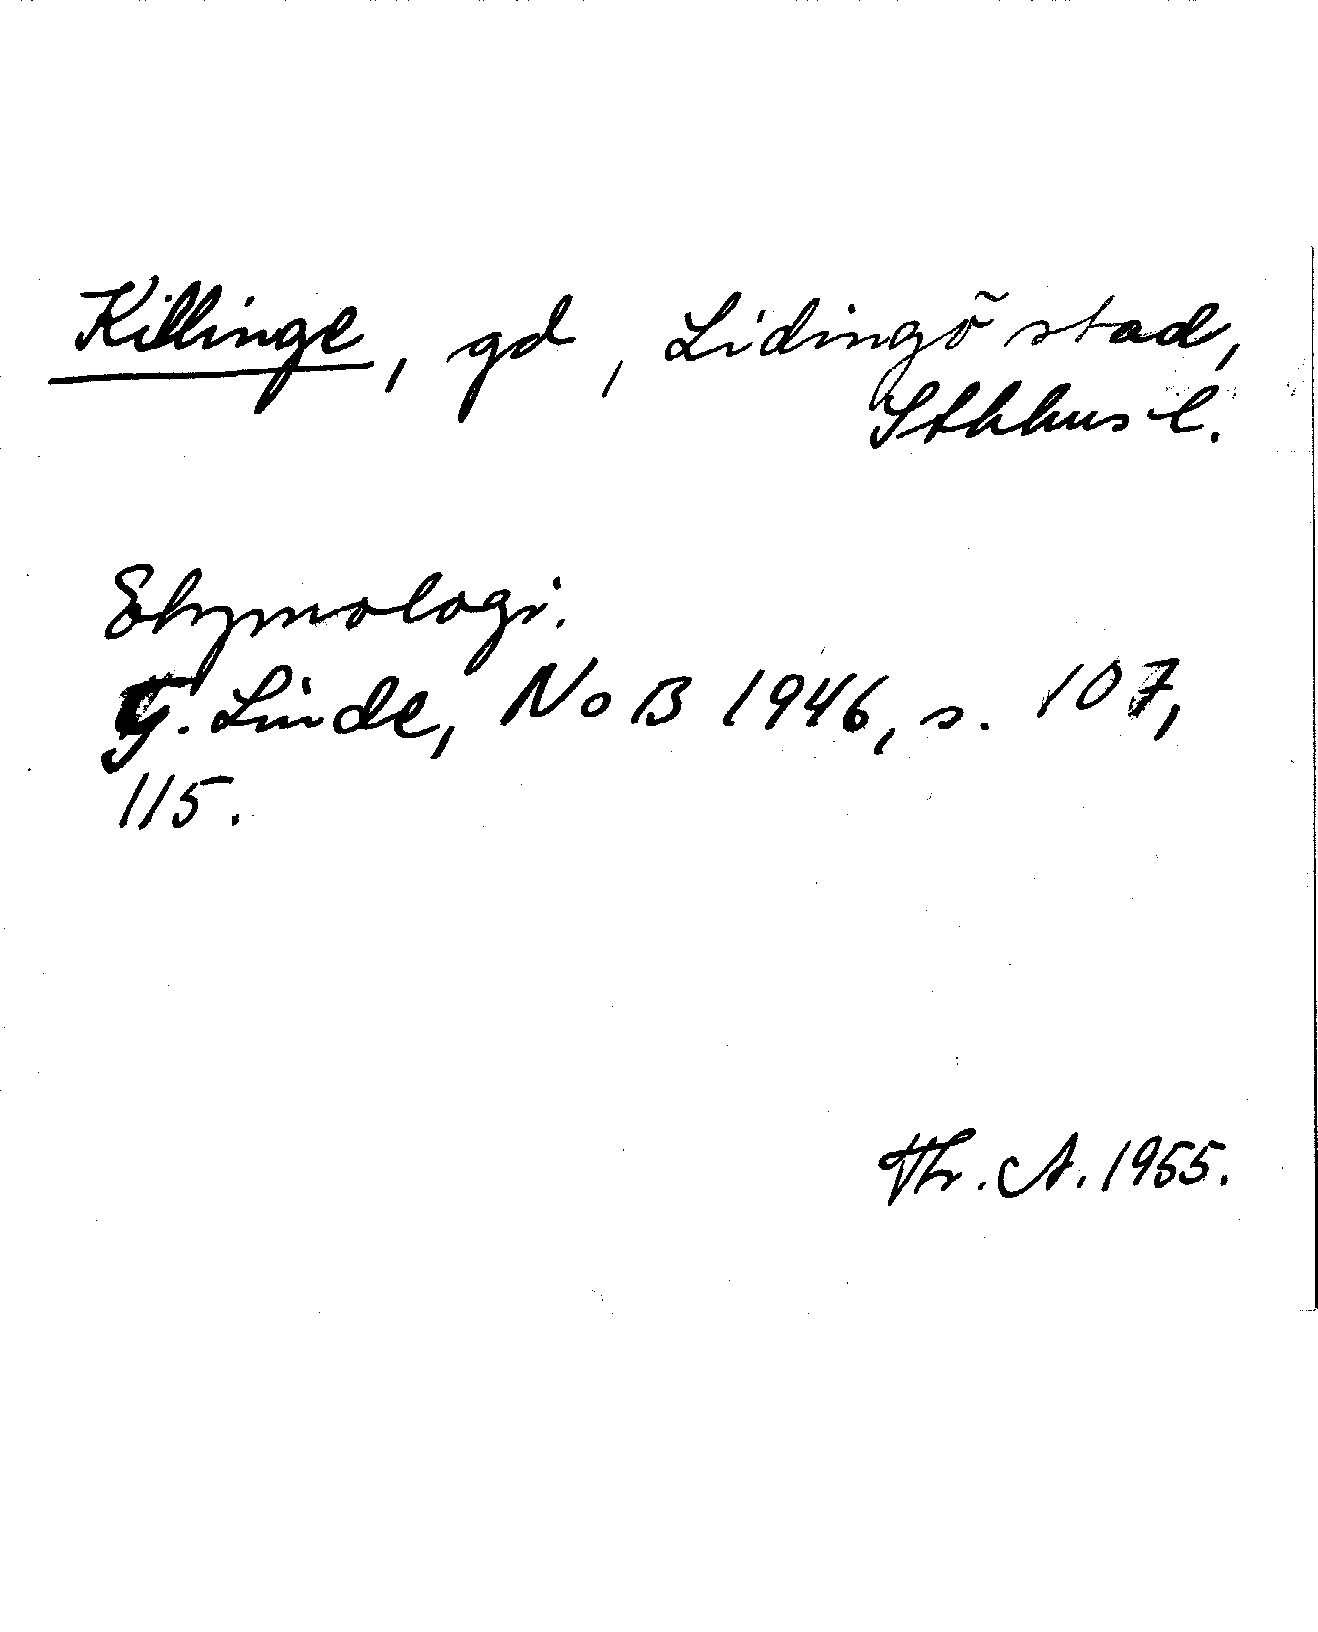 Killinge, gd, Lidingö stad,
Sthhus l.
Etymologi.
G. Linde, NoB 1946, s. 107,
115.
Thr. A. 1955.